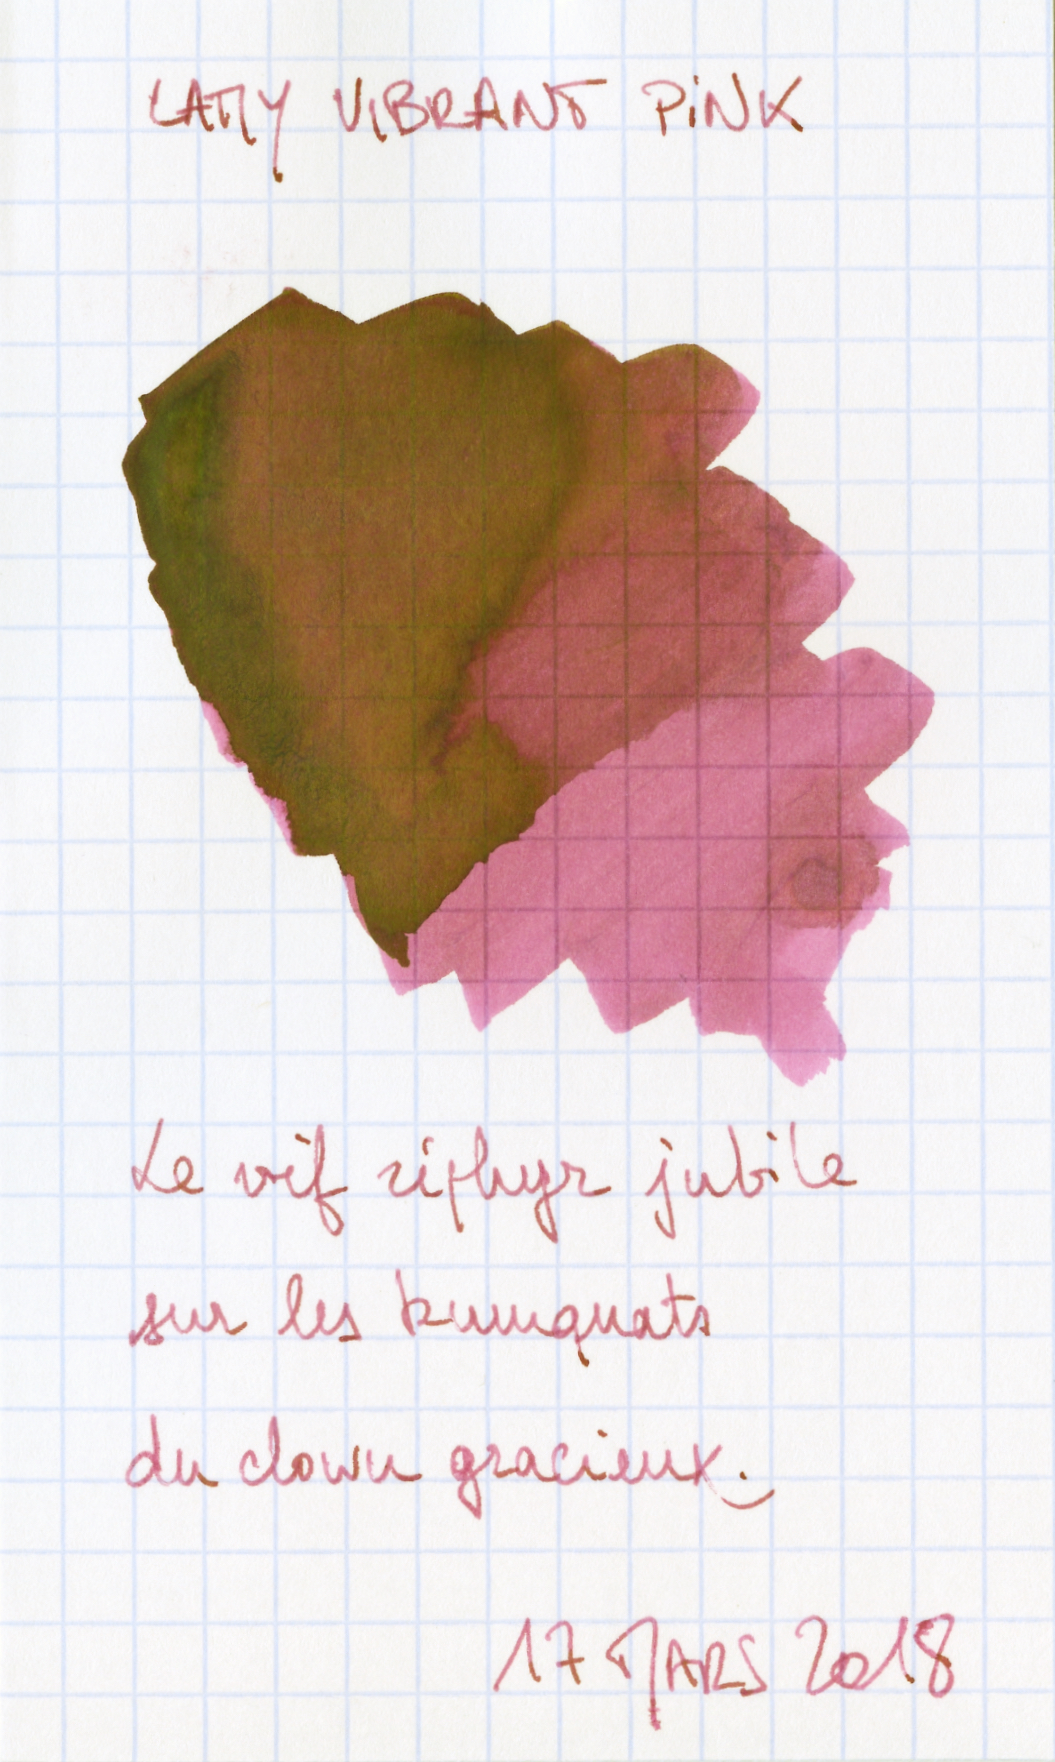 LAMY VIBRANT PINK
Le vif zéphyr jubile
sur les kumquats
du clown gracieux.
17 MARS 2018